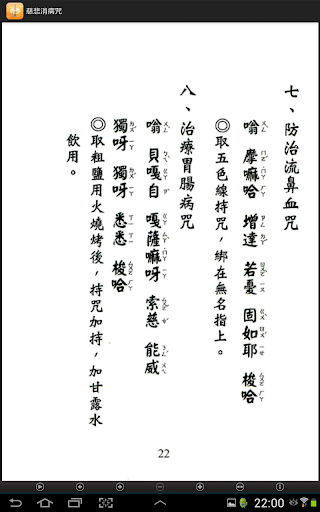 慈悲消病咒
七、防治流鼻血咒
嗡 摩嘛哈 增達 若憂 固如耶 梭哈
◎取五色線持咒，綁在無名指上。
八、治療胃腸病咒
嗡 貝嘎自 嘎薩嘛呀 索慈 能威
獨呀 獨呀 悉悉 梭哈
◎取粗鹽用火燒烤後，持咒加持，加甘露水
飲用。
22
22:00